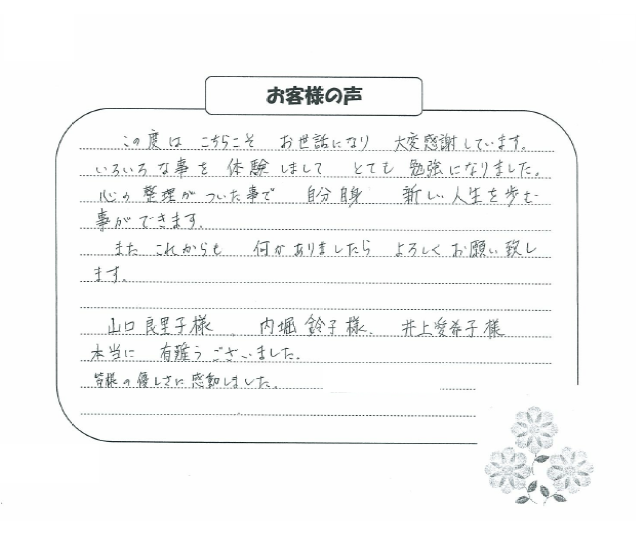 お客様の声
この度は こちらこそ お世話になり 大変感謝しています。
いろいろな事を 体験しまして とても 勉強になりました。
心の 整理が ついた事で 自分自身 新しい 人生を歩む
事ができます。
また これからも 何かありましたら よろしく お願い致し
ます。
山口良里子様、 内堀 鈴子様、 井上愛希子様
本当に 有難うございました。
皆様の優しさに感動しました。